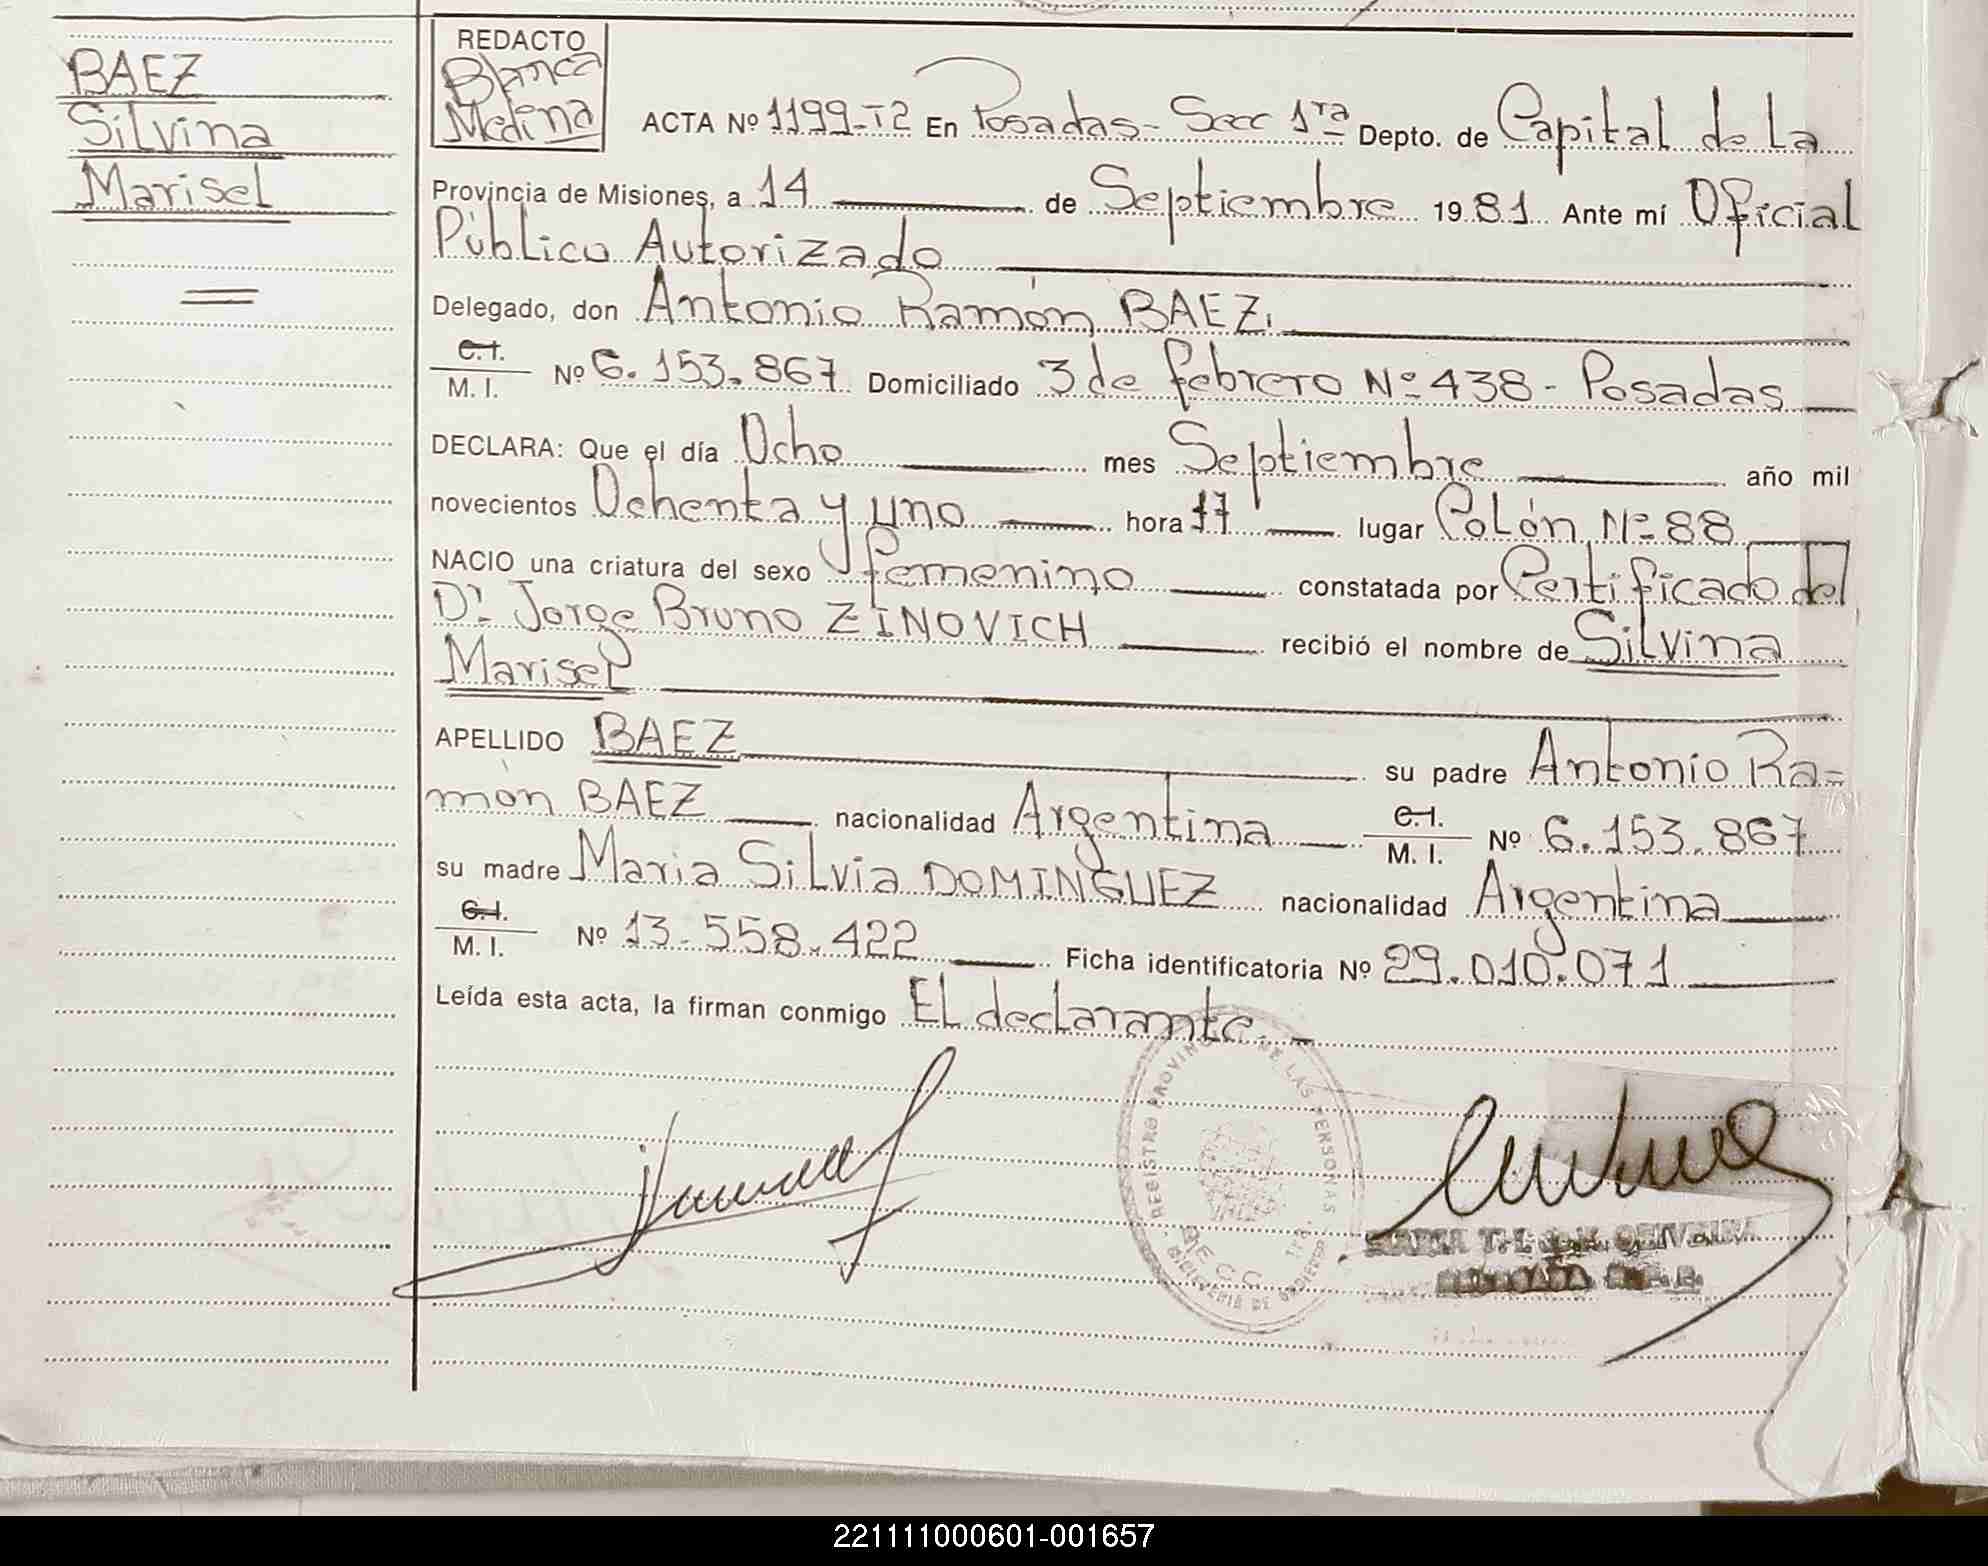 BAEZ
Silvina
Marisel
REDACTO
Blanca
Medina
ACTA Nº 1199-T2 En Posadas - Secc 1ra Depto. de Capital de La
Provincia de Misiones, a 14 de Septiembre 1981 Ante mí Oficial
Público Autorizado
Delegado, don Antonio Ramón BAEZ.
C.I.
M. I. Nº 6.153.867 Domiciliado 3 de febrero Nº 438 - Posadas
DECLARA: Que el día Ocho mes Septiembre año mil
novecientos Ochenta y uno hora 17 lugar Colón Nº 88
NACIO una criatura del sexo femenino constatada por Certificado del
Dr. Jorge Bruno ZINOVICH recibió el nombre de Silvina
Marisel
APELLIDO BAEZ su padre Antonio Ra-
món BAEZ nacionalidad Argentina C.I. M. I. Nº 6.153.867
su madre Maria Silvia DOMINGUEZ nacionalidad Argentina
C.I.
M. I. Nº 13.558.422 Ficha identificatoria Nº 29.010.071
Leída esta acta, la firman conmigo El declarante.-
REGISTRO PROVINCIAL DE LAS PERSONAS
MARIA T.
221111000601-001657